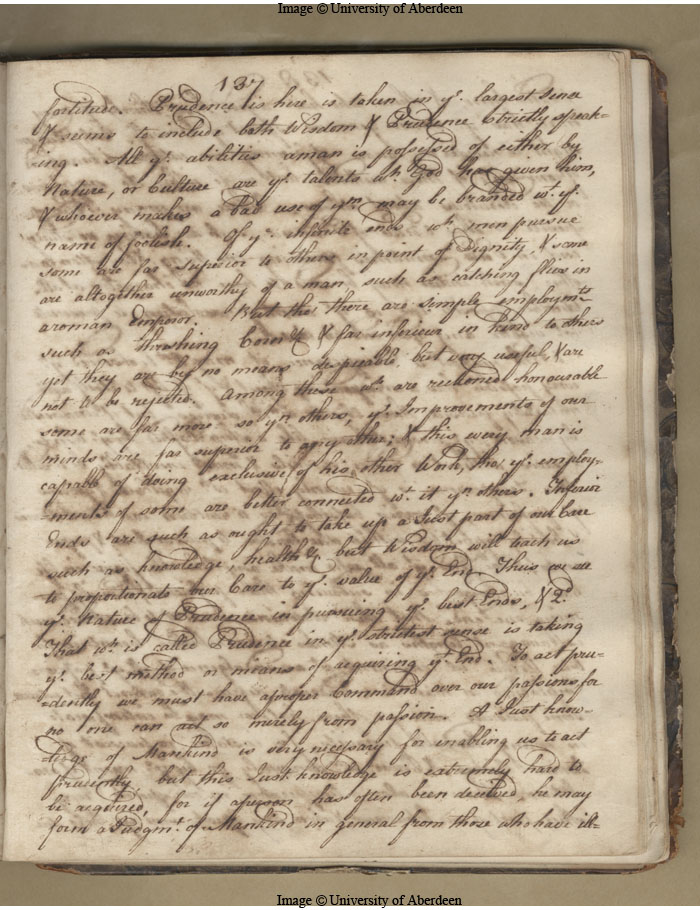 Image © University of Aberdeen
137
fortitude. Prudence is here is taken in ye. largest sense
& seems to include both Wisdom & Prudence Strictly speak-
ing. All ye. abilities a man is possessed of either by
Nature, or Culture are ye. talents wh. God has given him,
& whoever makes a bad use of ym. may be branded wt. ye.
name of foolish. Of ye. infinite ends wh. men pursue
some are far superior to others in point of Dignity, & some
are altogether unworthy of a man, such as catching flies in
a roman Emperor. But tho' there are simple employmts.
such as thrashing Corn &c & far inferiour in kind to others
yet they are by no means despicable, but very useful, & are
not to be rejected. Among these wh. are reckoned honourable
some are far more so yn others, ye. Improvements of our
minds are far superior to any other; & this every man is
capable of doing exclusive of his other Work, tho' ye. employ-
-ments of some are better connected wt. it yn others. Inferior
Ends are such as ought to take up a Just part of our Care
such as knowledge, health &c but Wisdom will teach us
to proportionate our Care to ye. value of ye. End. Thus we see
ye. Nature of Prudence in pursuing ye. best Ends, & 2d.
That wh. is called Prudence in ye. strictest sense is taking
ye. best method or means of acquiring yt. End. To act pru-
-dently we must have a proper Command over our passions for
no one can act so merely from passion. A Just know-
-ledge of Mankind is very necessary for enabling us to act
prudently, but this Just knowledge is extremely hard to
be acquired, for if a person has often been deceived, he may
form a Judgmt. of Mankind in general from those who have ill-
Image © University of Aberdeen